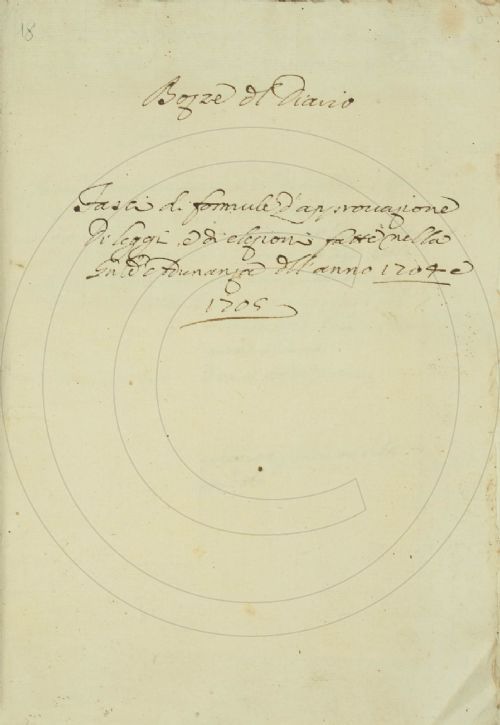 18
Bozze dl Diario
Fasci di formule d'approuazione
Di leggi e di elezioni fatte nella
Adunanza dll'anno 1704 e
1705